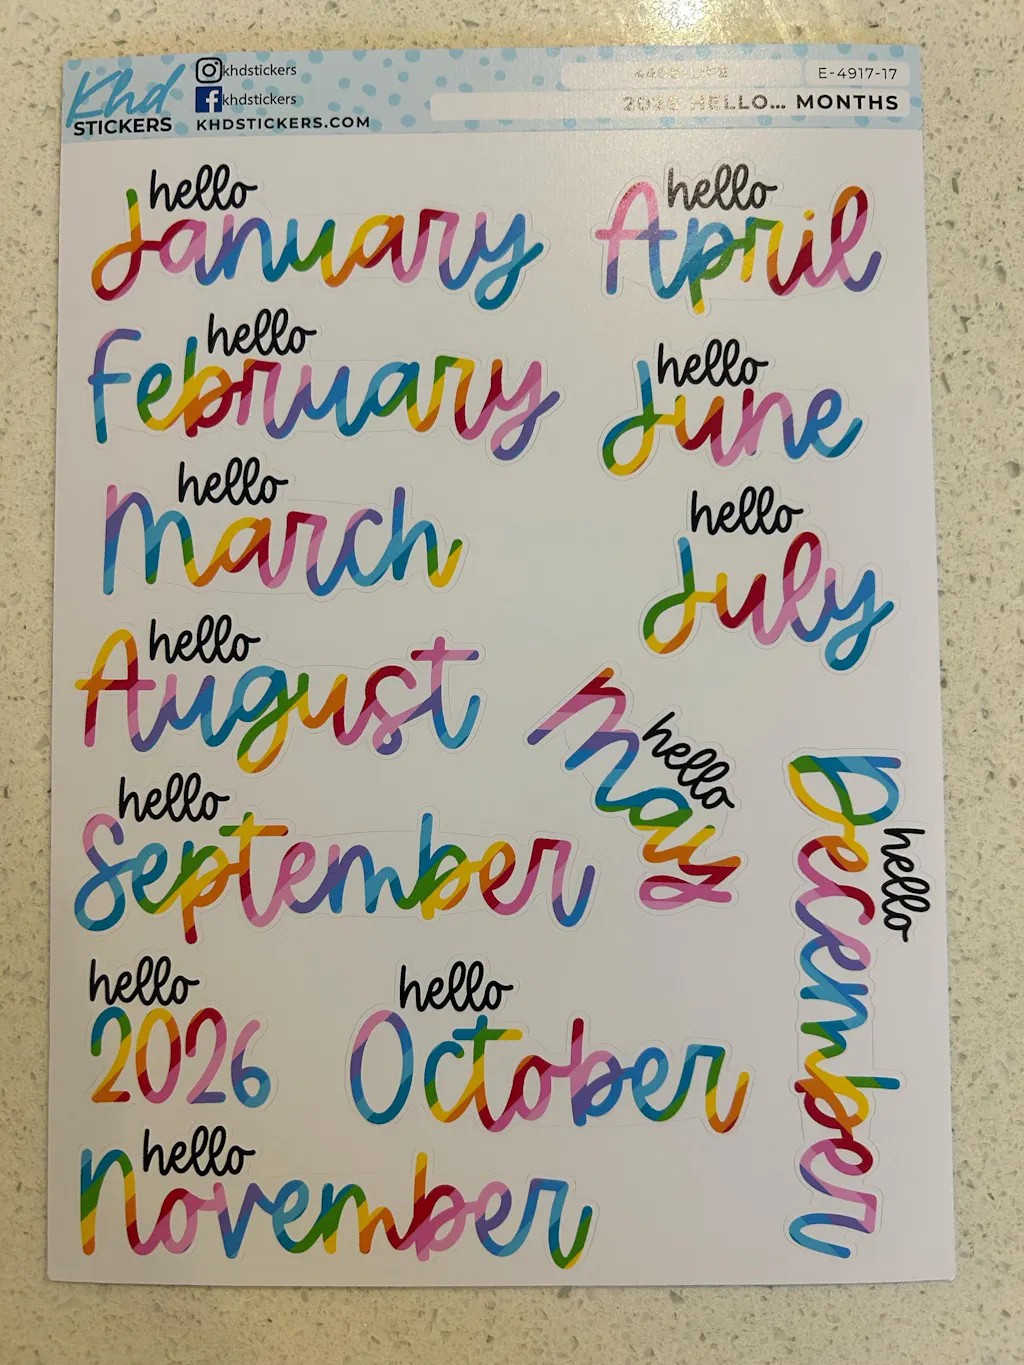 Khd
STICKERS
khdstickers
khdstickers
KHDSTICKERS.COM
E-4917-17
2026 HELLO... MONTHS
hello
January
hello
April
hello
February
hello
June
hello
March
hello
July
hello
August
hello
May
hello
September
hello
December
hello
2026
hello
October
hello
November